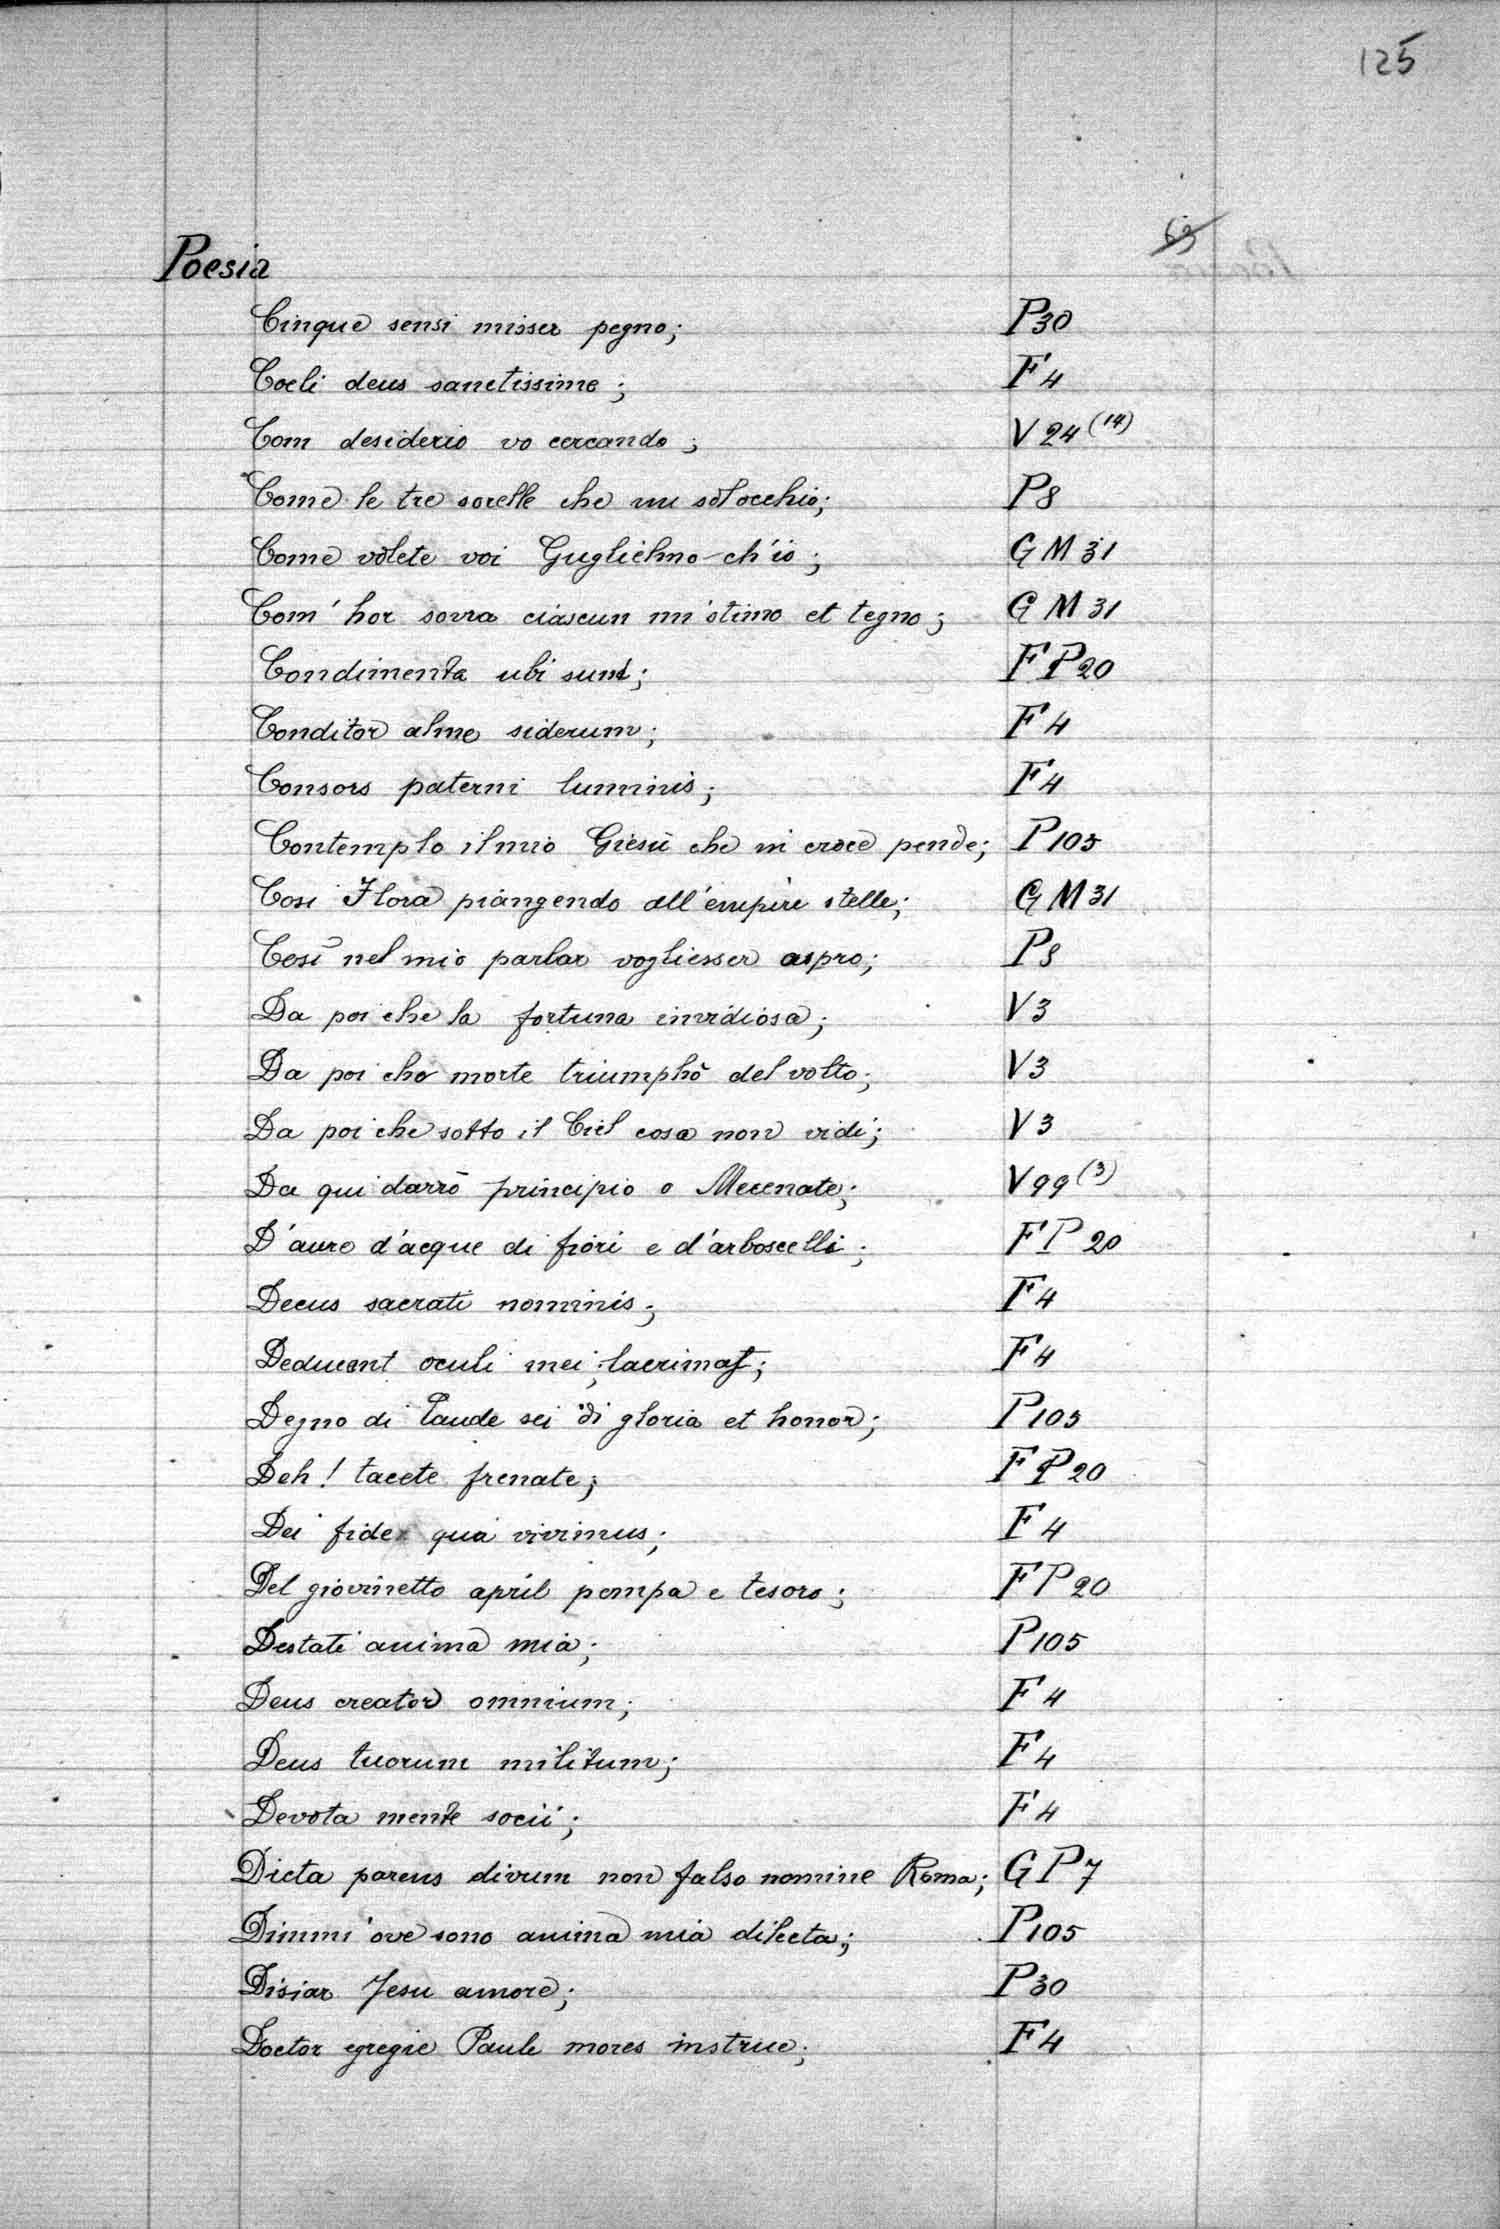 125
63
Poesia
Cinque sensi misser pegno; P30
Coeli deus sanctissime; F4
Com desiderio vo cercando; V24(14)
Come le tre sorelle che un sol occhio; P8
Come volete voi Guglielmo ch'io; GM31
Com' hor sovra ciascun mi stimo et tegno; GM31
Condimenta ubi sunt; FP20
Conditor alme siderum; F4
Consors paterni luminis; F4
Contemplo il mio Giesù che in croce pende; P105
Cosi Flora piangendo all'empire stelle; GM31
Così nel mio parlar vogliesser aspro; P8
Da poi che la fortuna invidiosa; V3
Da poi che morte triumphò del volto; V3
Da poi che sotto il Ciel cosa non vidi; V3
Da qui darrò principio o Mecenate; V99(3)
D'aure d'acque di fiori e d'arboscelli; FP20
Decus sacrati nominis; F4
Deducant oculi mei lacrimas; F4
Degno di laude sei di gloria et honor; P105
Deh! tacete frenate; FP20
Dei fide qua vivimus; F4
Del giovinetto april pompa e tesoro; FP20
Destati anima mia; P105
Deus creator omnium; F4
Deus tuorum militum; F4
Devota mente socii; F4
Dicta parens divum non falso nomine Roma; GP7
Dimmi ove sono anima mia dilecta; P105
Disiar Jesu amore; P30
Doctor egregie Paule mores instrue; F4